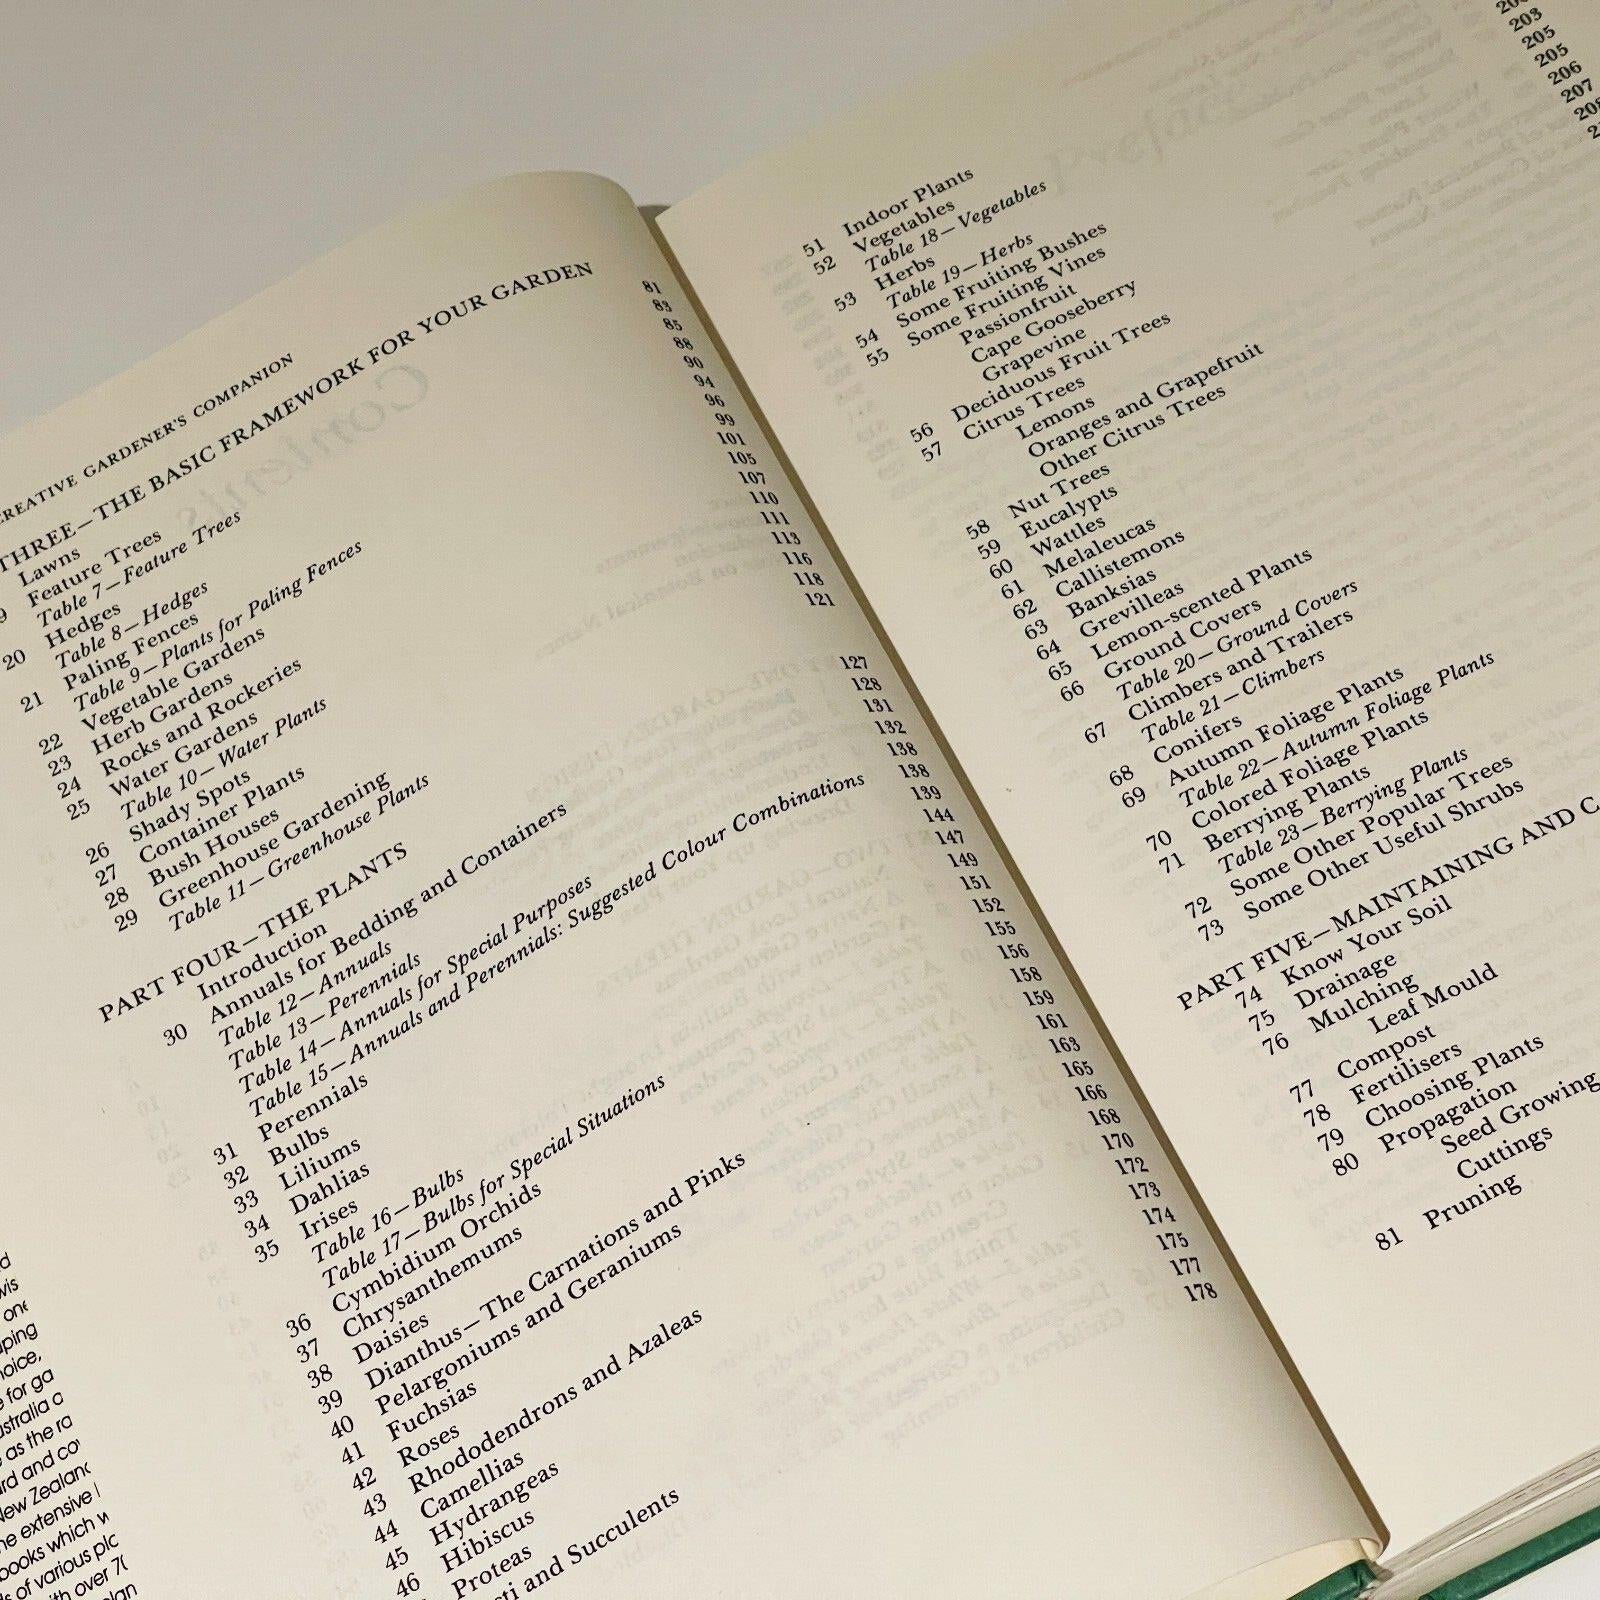 CREATIVE GARDENER'S COMPANION
THREE—THE BASIC FRAMEWORK FOR YOUR GARDEN
Lawns
Feature Trees
Table 7—Feature Trees
20 Hedges
Table 8—Hedges
21 Paling Fences
Table 9—Plants for Paling Fences
22 Vegetable Gardens
23 Herb Gardens
24 Rocks and Rockeries
25 Water Gardens
Table 10—Water Plants
26 Shady Spots
27 Container Plants
28 Bush Houses
29 Greenhouse Gardening
Table 11—Greenhouse Plants
PART FOUR—THE PLANTS
Introduction
30 Annuals for Bedding and Containers
Table 12—Annuals
Table 13—Perennials
Table 14—Annuals for Special Purposes
Table 15—Annuals and Perennials: Suggested Colour Combinations
31 Perennials
32 Bulbs
33 Liliums
34 Dahlias
35 Irises
Table 16—Bulbs
Table 17—Bulbs for Special Situations
36 Cymbidium Orchids
37 Chrysanthemums
38 Daisies
39 Dianthus—The Carnations and Pinks
40 Pelargoniums and Geraniums
41 Fuchsias
42 Roses
43 Rhododendrons and Azaleas
44 Camellias
45 Hydrangeas
46 Hibiscus
Proteas
and Succulents
81
83
85
88
90
94
96
99
101
105
107
110
111
113
116
118
121
127
128
131
132
138
138
139
144
147
149
151
152
155
156
158
159
161
163
165
166
168
170
172
173
174
175
177
178
51 Indoor Plants
52 Vegetables
Table 18—Vegetables
53 Herbs
Table 19—Herbs
54 Some Fruiting Bushes
55 Some Fruiting Vines
Passionfruit
Cape Gooseberry
Grapevine
56 Deciduous Fruit Trees
57 Citrus Trees
Lemons
Oranges and Grapefruit
Other Citrus Trees
58 Nut Trees
59 Eucalypts
60 Wattles
61 Melaleucas
62 Callistemons
63 Banksias
64 Grevilleas
65 Lemon-scented Plants
66 Ground Covers
Table 20—Ground Covers
67 Climbers and Trailers
Table 21—Climbers
68 Conifers
69 Autumn Foliage Plants
Table 22—Autumn Foliage Plants
70 Colored Foliage Plants
71 Berrying Plants
Table 23—Berrying Plants
72 Some Other Popular Trees
73 Some Other Useful Shrubs
PART FIVE—MAINTAINING AND
74 Know Your Soil
75 Drainage
76 Mulching
Leaf Mould
77 Compost
78 Fertilisers
79 Choosing Plants
80 Propagation
Seed Growing
Cuttings
81 Pruning
203
205
205
206
207
one
for ga
as the ra
and
New Zealand
the extensive
books which
of various
with over